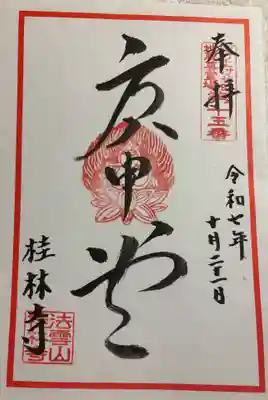 奉拝
令和七年
十月二十一日
庚申堂
桂林寺
法雲山